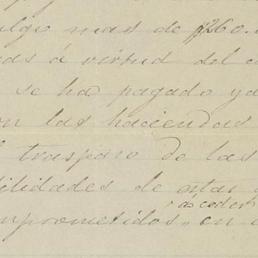 algo mas de $260.
as á virtud del c
se ha pagado ya
on las haciendas
l traspaso de las
ilidades de estar
á ceder
mprometidos, en